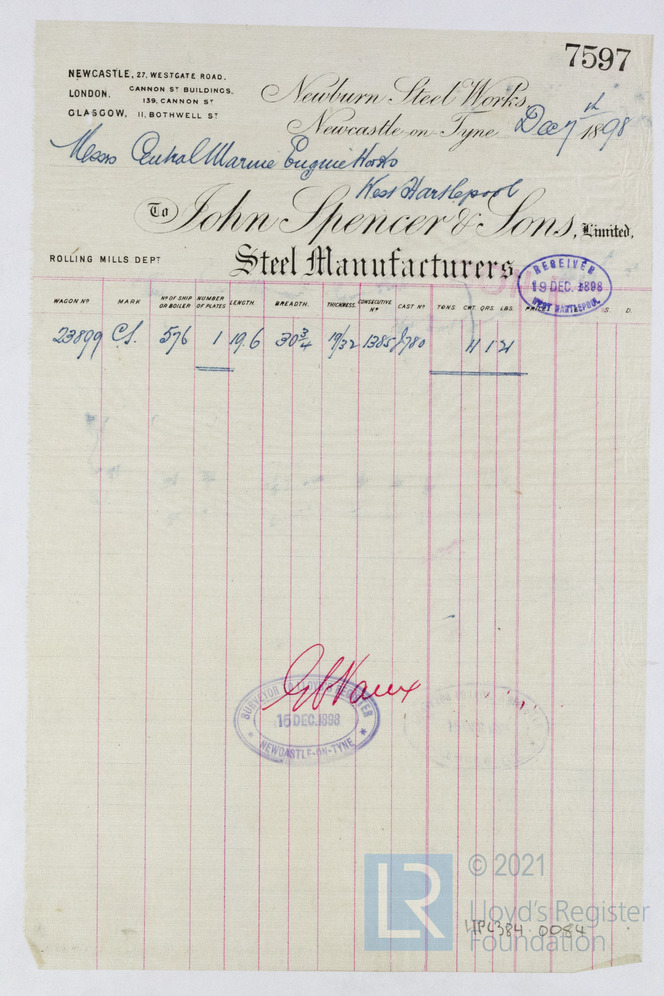 7597
NEWCASTLE, 27, WESTGATE ROAD.
LONDON. CANNON ST BUILDINGS, 139, CANNON ST
GLASGOW, 11, BOTHWELL ST
Newburn Steel Works,
Newcastle-on-Tyne Dec 7th 1898
Messrs Central Marine Engine Works
West Hartlepool
To John Spencer & Sons, Limited,
ROLLING MILLS DEPT
Steel Manufacturers.
RECEIVED
19 DEC. 1898
WEST HARTLEPOOL
WAGON No MARK No OF SHIP OR BOILER NUMBER OF PLATES LENGTH. BREADTH. THICKNESS. CONSECUTIVE No CAST No TONS CWT. QRS. LBS. S. D.
23899 C.S. 576 1 19.6 30 3/4 19/32 1385 8780 11 1 21
SURVEYOR TO LLOYD'S REGISTER
15 DEC. 1898
NEWCASTLE-ON-TYNE
LR
© 2021
Lloyd's Register
Foundation
0084